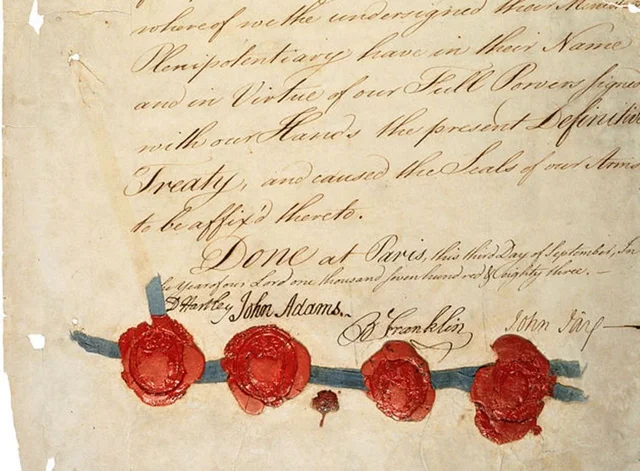 whereof we the undersigned their Minist
Plenipotentiary have in their Name
and in Virtue of our Full Powers signed
with our Hands the present Definitive
Treaty, and caused the Seals of our Arms
to be affix'd thereto.
Done at Paris, this third Day of September, In
Year of our Lord one thousand seven hundred & eighty three. —
D Hartley John Adams. B Franklin John Jay —